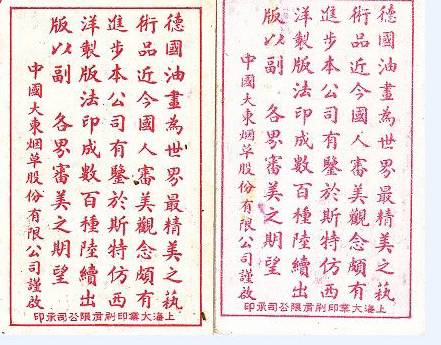 德國油畫為世界最精美之藝
術品近今國人審美觀念頗有
進步本公司有鑒於斯特仿西
洋製版法印成數百種陸續出
版以副 各界審美之期望
中國大東烟草股份有限公司謹啟
上海大業印刷有限公司承印
德國油畫為世界最精美之藝
術品近今國人審美觀念頗有
進步本公司有鑒於斯特仿西
洋製版法印成數百種陸續出
版以副 各界審美之期望
中國大東烟草股份有限公司謹啟
上海大業印刷有限公司承印